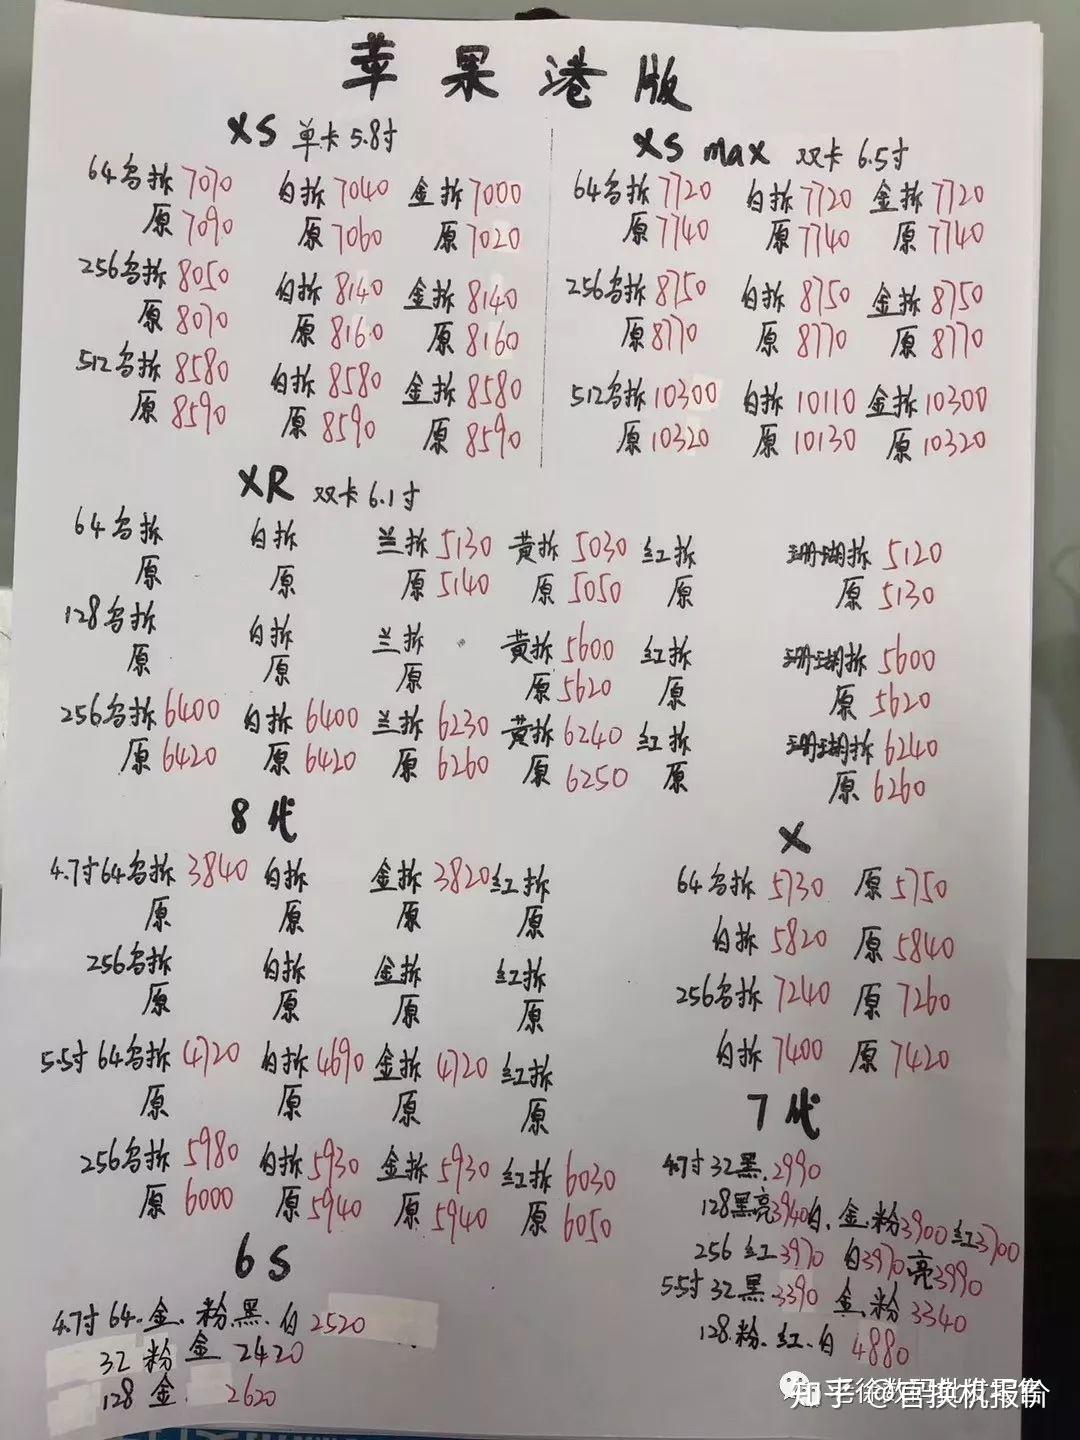 苹果港版
XS 单卡 5.8寸
64乌拆 7070 白拆 7040 金拆 7000
原 7090 原 7060 原 7020
256乌拆 8050 白拆 8140 金拆 8140
原 8070 原 8160 原 8160
512乌拆 8580 白拆 8580 金拆 8580
原 8590 原 8590 原 8590
XS max 双卡 6.5寸
64乌拆 7720 白拆 7720 金拆 7720
原 7740 原 7740 原 7740
256乌拆 8750 白拆 8750 金拆 8750
原 8770 原 8770 原 8770
512乌拆 10300 白拆 10110 金拆 10300
原 10320 原 10130 原 10320
XR 双卡 6.1寸
64乌拆 白拆 兰拆 5130 黄拆 5030 红拆 珊瑚拆 5120
原 原 原 5140 原 5050 原 原 5130
128乌拆 白拆 兰拆 黄拆 5600 红拆 珊瑚拆 5600
原 原 原 原 5620 原 原 5620
256乌拆 6400 白拆 6400 兰拆 6230 黄拆 6240 红拆 珊瑚拆 6240
原 6420 原 6420 原 6260 原 6250 原 原 6260
8代
4.7寸 64乌拆 3840 白拆 金拆 3820 红拆
原 原 原 原
256乌拆 白拆 金拆 红拆
原 原 原 原
5.5寸 64乌拆 4720 白拆 4690 金拆 4720 红拆
原 原 原 原
256乌拆 5980 白拆 5930 金拆 5930 红拆 6030
原 6000 原 5940 原 5940 原 6050
X
64乌拆 5730 原 5750
白拆 5820 原 5840
256乌拆 7240 原 7260
白拆 7400 原 7420
7代
4.7寸 32黑.2990
128黑亮3940白.金.粉3900红3700
256 红3970 白3970亮3990
5.5寸 32黑.3390 金.粉 3340
128.粉.红.白 4880
6S
4.7寸 64.金.粉.黑.白 2520
32 粉 金 2420
128 金. 2620
知乎 @官换机报价